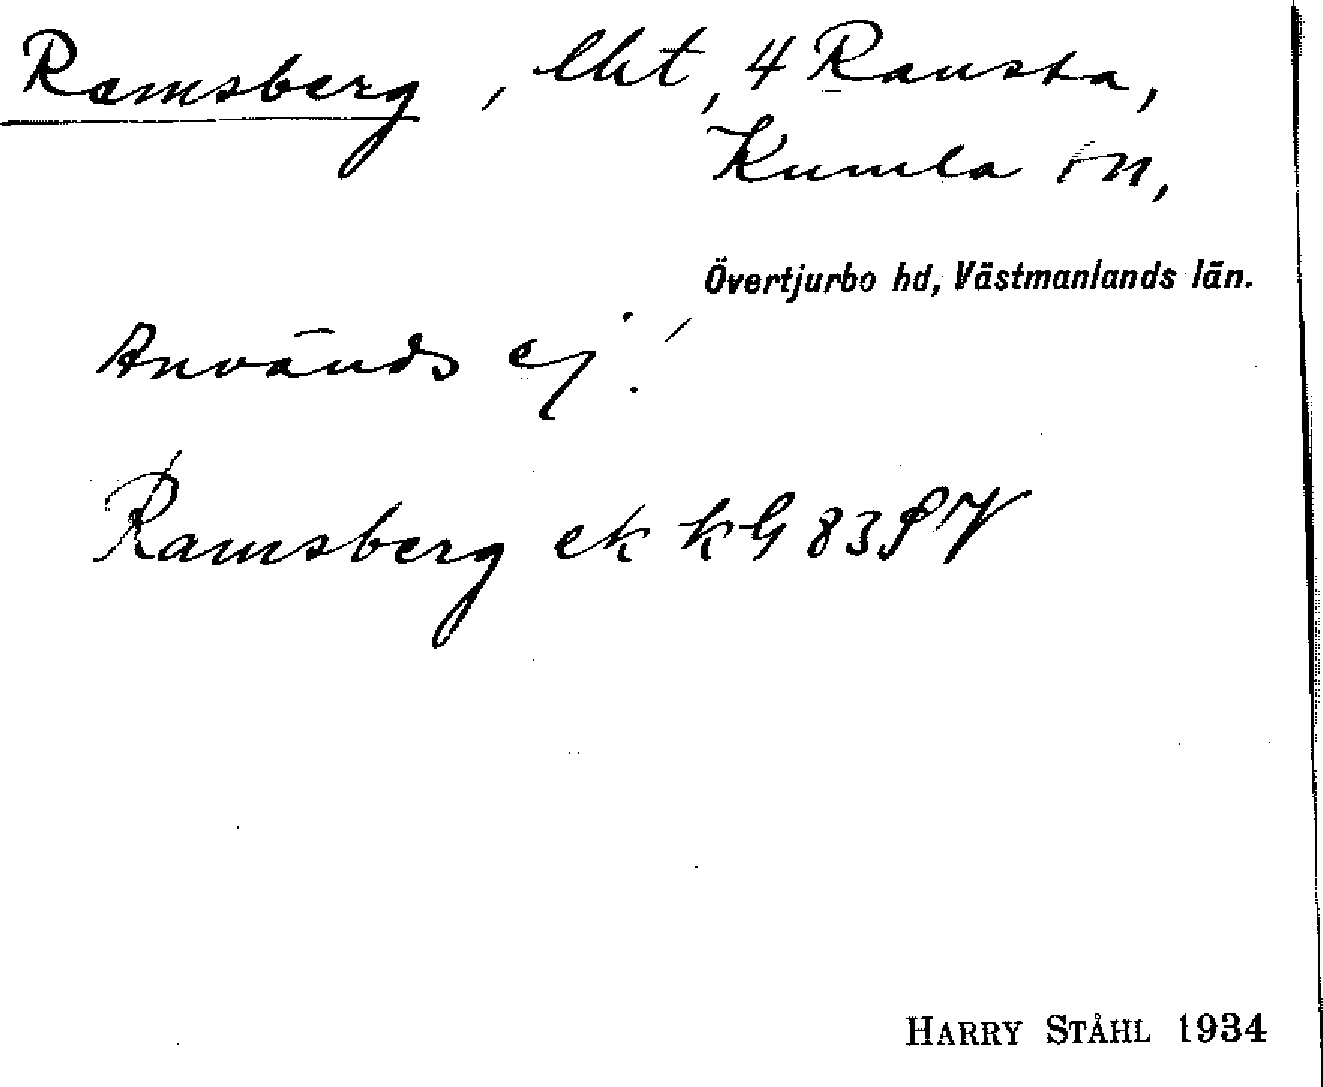 Ramsberg, lht, 4 Rausta,
Kumla sn,
Övertjurbo hd, Västmanlands län.
Används ej.
Ramsberg ek kG 83 SV
HARRY STÅHL 1934